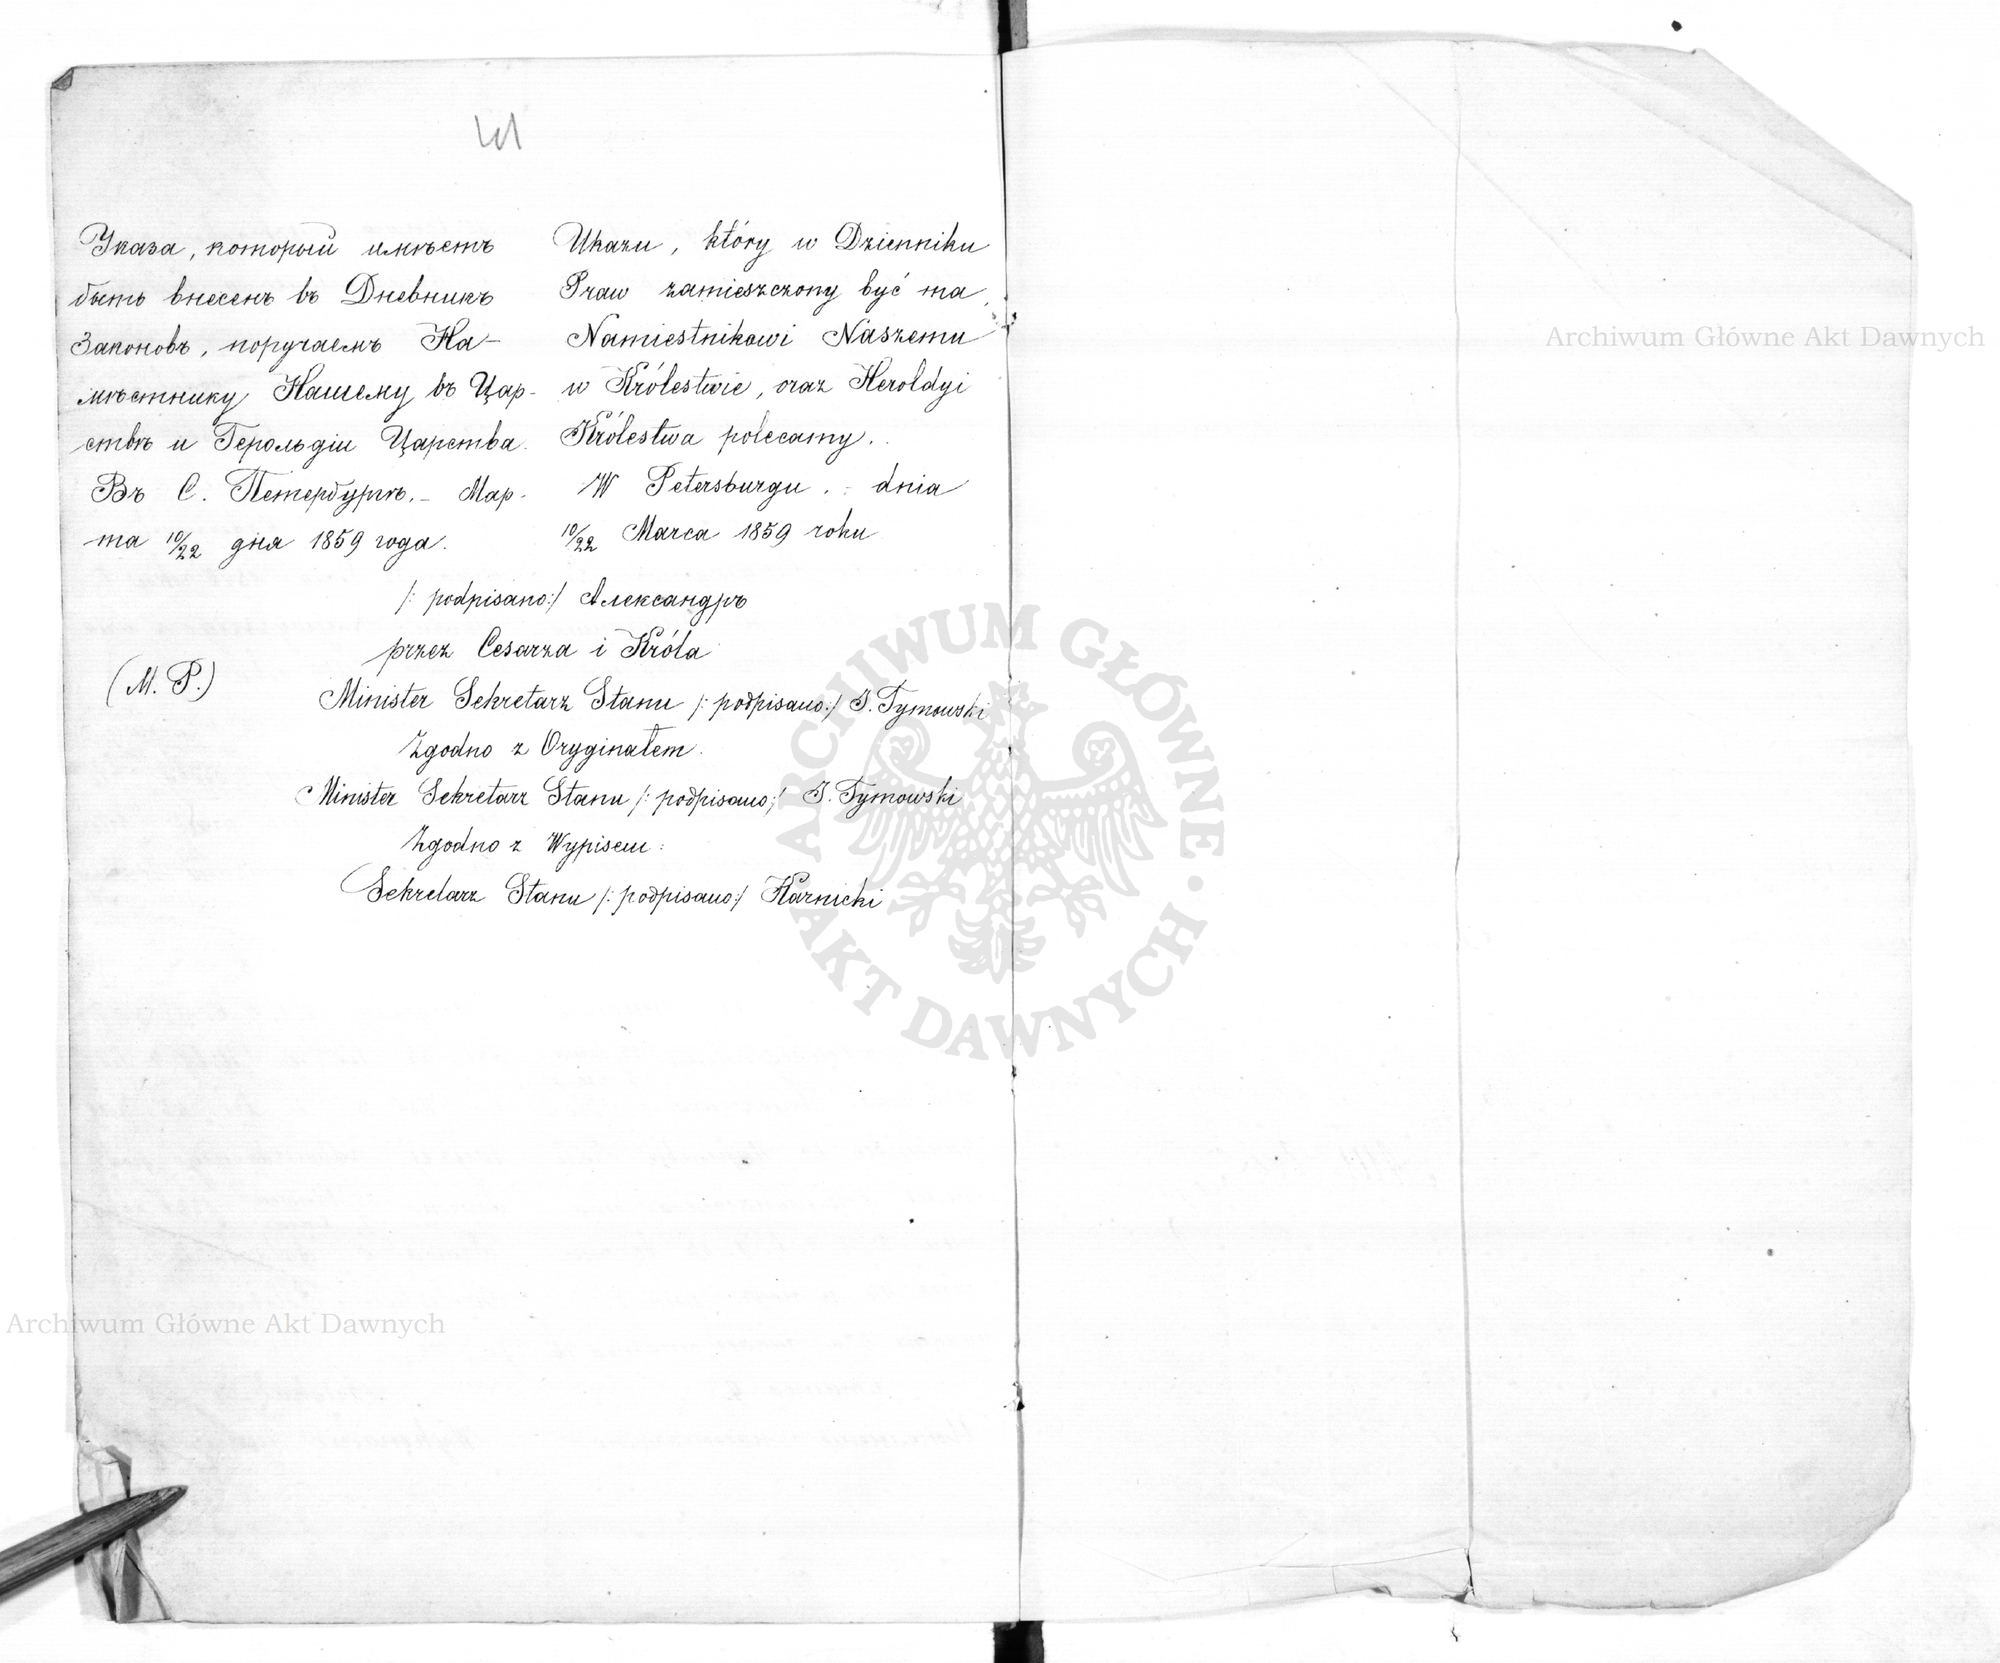 Указа, который имѣетъ
быть внесенъ въ Дневникъ
Законовъ, поручаемъ На-
мѣстнику Нашему въ Цар-
ствѣ и Герольдіи Царства.
Въ С. Петербургѣ. – Мар-
та 10/22 дня 1859 года.
Ukazu, który w Dzienniku
Praw zamieszczony być ma,
Namiestnikowi Naszemu
w Królestwie, oraz Heroldyi
Królestwa polecamy.
W Petersburgu. dnia
10/22 Marca 1859 roku
/: podpisano:/ Александръ
przez Cesarza i Króla
(M. P.)
Minister Sekretarz Stanu /: podpisano:/ J. Tymowski
Zgodno z Oryginałem.
Minister Sekretarz Stanu /: podpisano:/ J. Tymowski
Zgodno z Wypisem:
Sekretarz Stanu /: podpisano:/ Karnicki
Archiwum Główne Akt Dawnych
ARCHIWUM GŁÓWNE · AKT DAWNYCH ·
Archiwum Główne Akt Dawnych